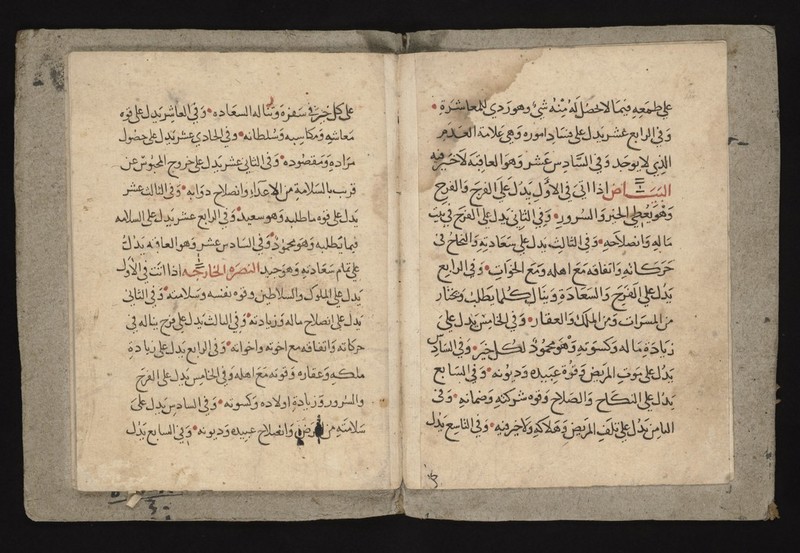 على طمعه فيما لا حصل له منه شئ وهو ردي للمعاشرة
وفي الرابع عشر يدل على فساد اموره وهي علامة العدم
الذي لا يوجد وفي السادس عشر وهو العاقبة لا خير فيه
البياض اذا اتى في الاول يدل على الفرح والفرج
وهو يعطى الخير والسرور وفي الثاني يدل على الفرح في بيت
ماله وانصلاحه وفي الثالث يدل على سعادته والنجاح في
حركاته واتفاقه مع اهله ومع اخوات وفي الرابع
يدل على الفرح والسعادة وينال كلما يطلب ويختار
من المسرات ومن الملك والعقار وفي الخامس يدل على
زيادة ماله وكسوته وهو محمود لكل خير وفي السادس
يدل على موت المريض وقوة عبيده وديونه وفي السابع
يدل على النكاح والصلاح وقوه شوكته وضمانه وفي
الثامن يدل على تلف المريض وهلاكه ولا خير فيه وفي التاسع يدل
على كل خير في سفره وتناله السعاده وفي العاشر يدل على قوه
معاشه ومكاسبه وسلطانه وفي الحادي عشر يدل على حصول
مراده ومقصوده وفي الثاني عشر يدل على خروج المحبوس عن
قريب بالسلامة من الاعداء وانصلاح دوابه وفي الثالث عشر
يدل على قوه ما طلبه وهو سعيد وفي الرابع عشر يدل على السلامه
فيما يطلبه وهو محمود وفي السادس عشر وهو العاقبه يدل
على تمام سعادته وهو جيد النصره الخارجه اذا اتت في الاول
يدل على الملوك والسلاطين وقوه نفسه وسلامته وفي الثاني
يدل على انصلاح ماله وزيادته وفي الثالث يدل على فرح يناله في
حركاته واتفاقه مع اخوته واخواته وفي الرابع يدل على زيادة
ملكه وعقاره وقوته مع اهله وفي الخامس يدل على الفرح
والسرور وزيادة اولاده وكسوته وفي السادس يدل على
سلامته من المرض وانصلاح عبيده وديونه وفي السابع يدل